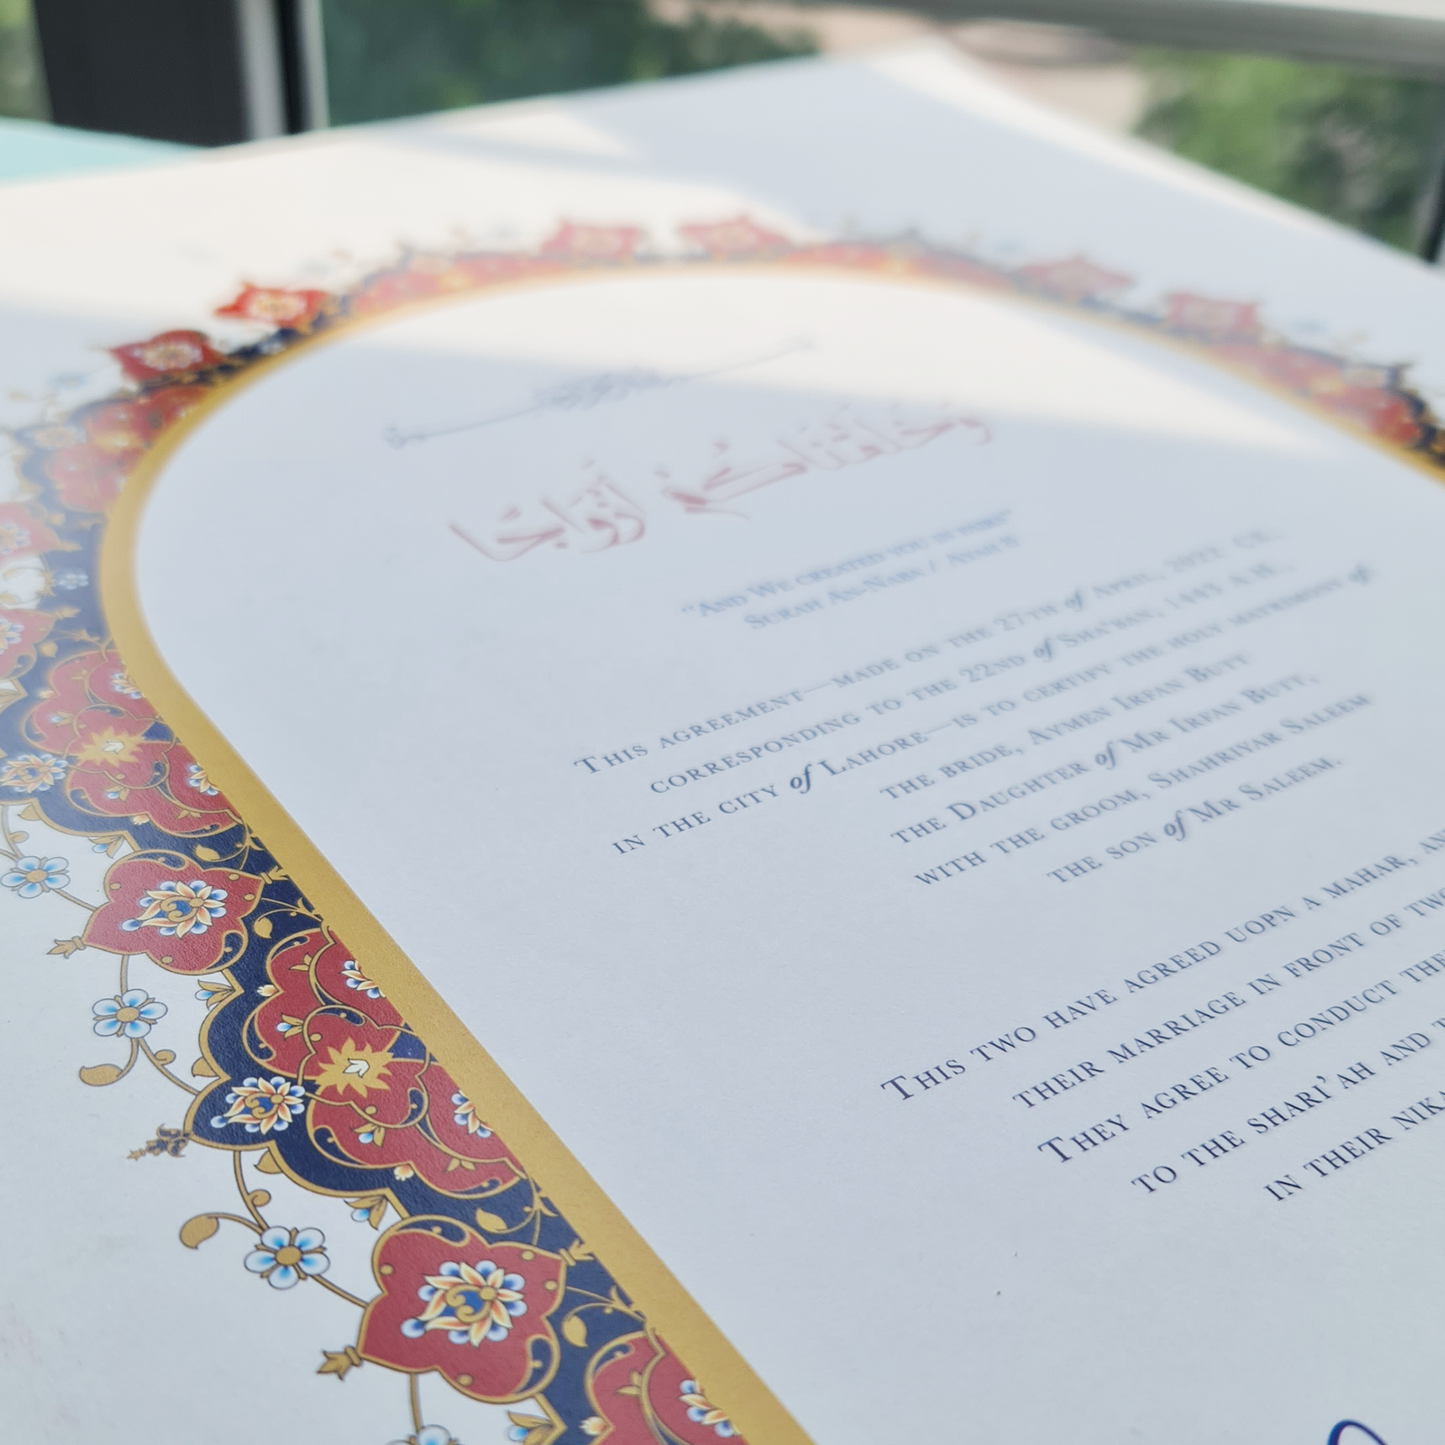 وَخَلَقْنَاكُمْ أَزْوَاجًا
"And We created you in pairs"
Surah An-Naba / Ayah 8
This agreement—made on the 27th of April, 2022 CE,
corresponding to the 22nd of Sha'ban, 1443 A.H.,
in the city of Lahore—is to certify the holy matrimony of
the bride, Aymen Irfan Butt
the Daughter of Mr Irfan Butt,
with the groom, Shahriyar Saleem
the son of Mr Saleem.
This two have agreed uopn a mahar, an
their marriage in front of two
They agree to conduct the
to the shari'ah and
in their nika